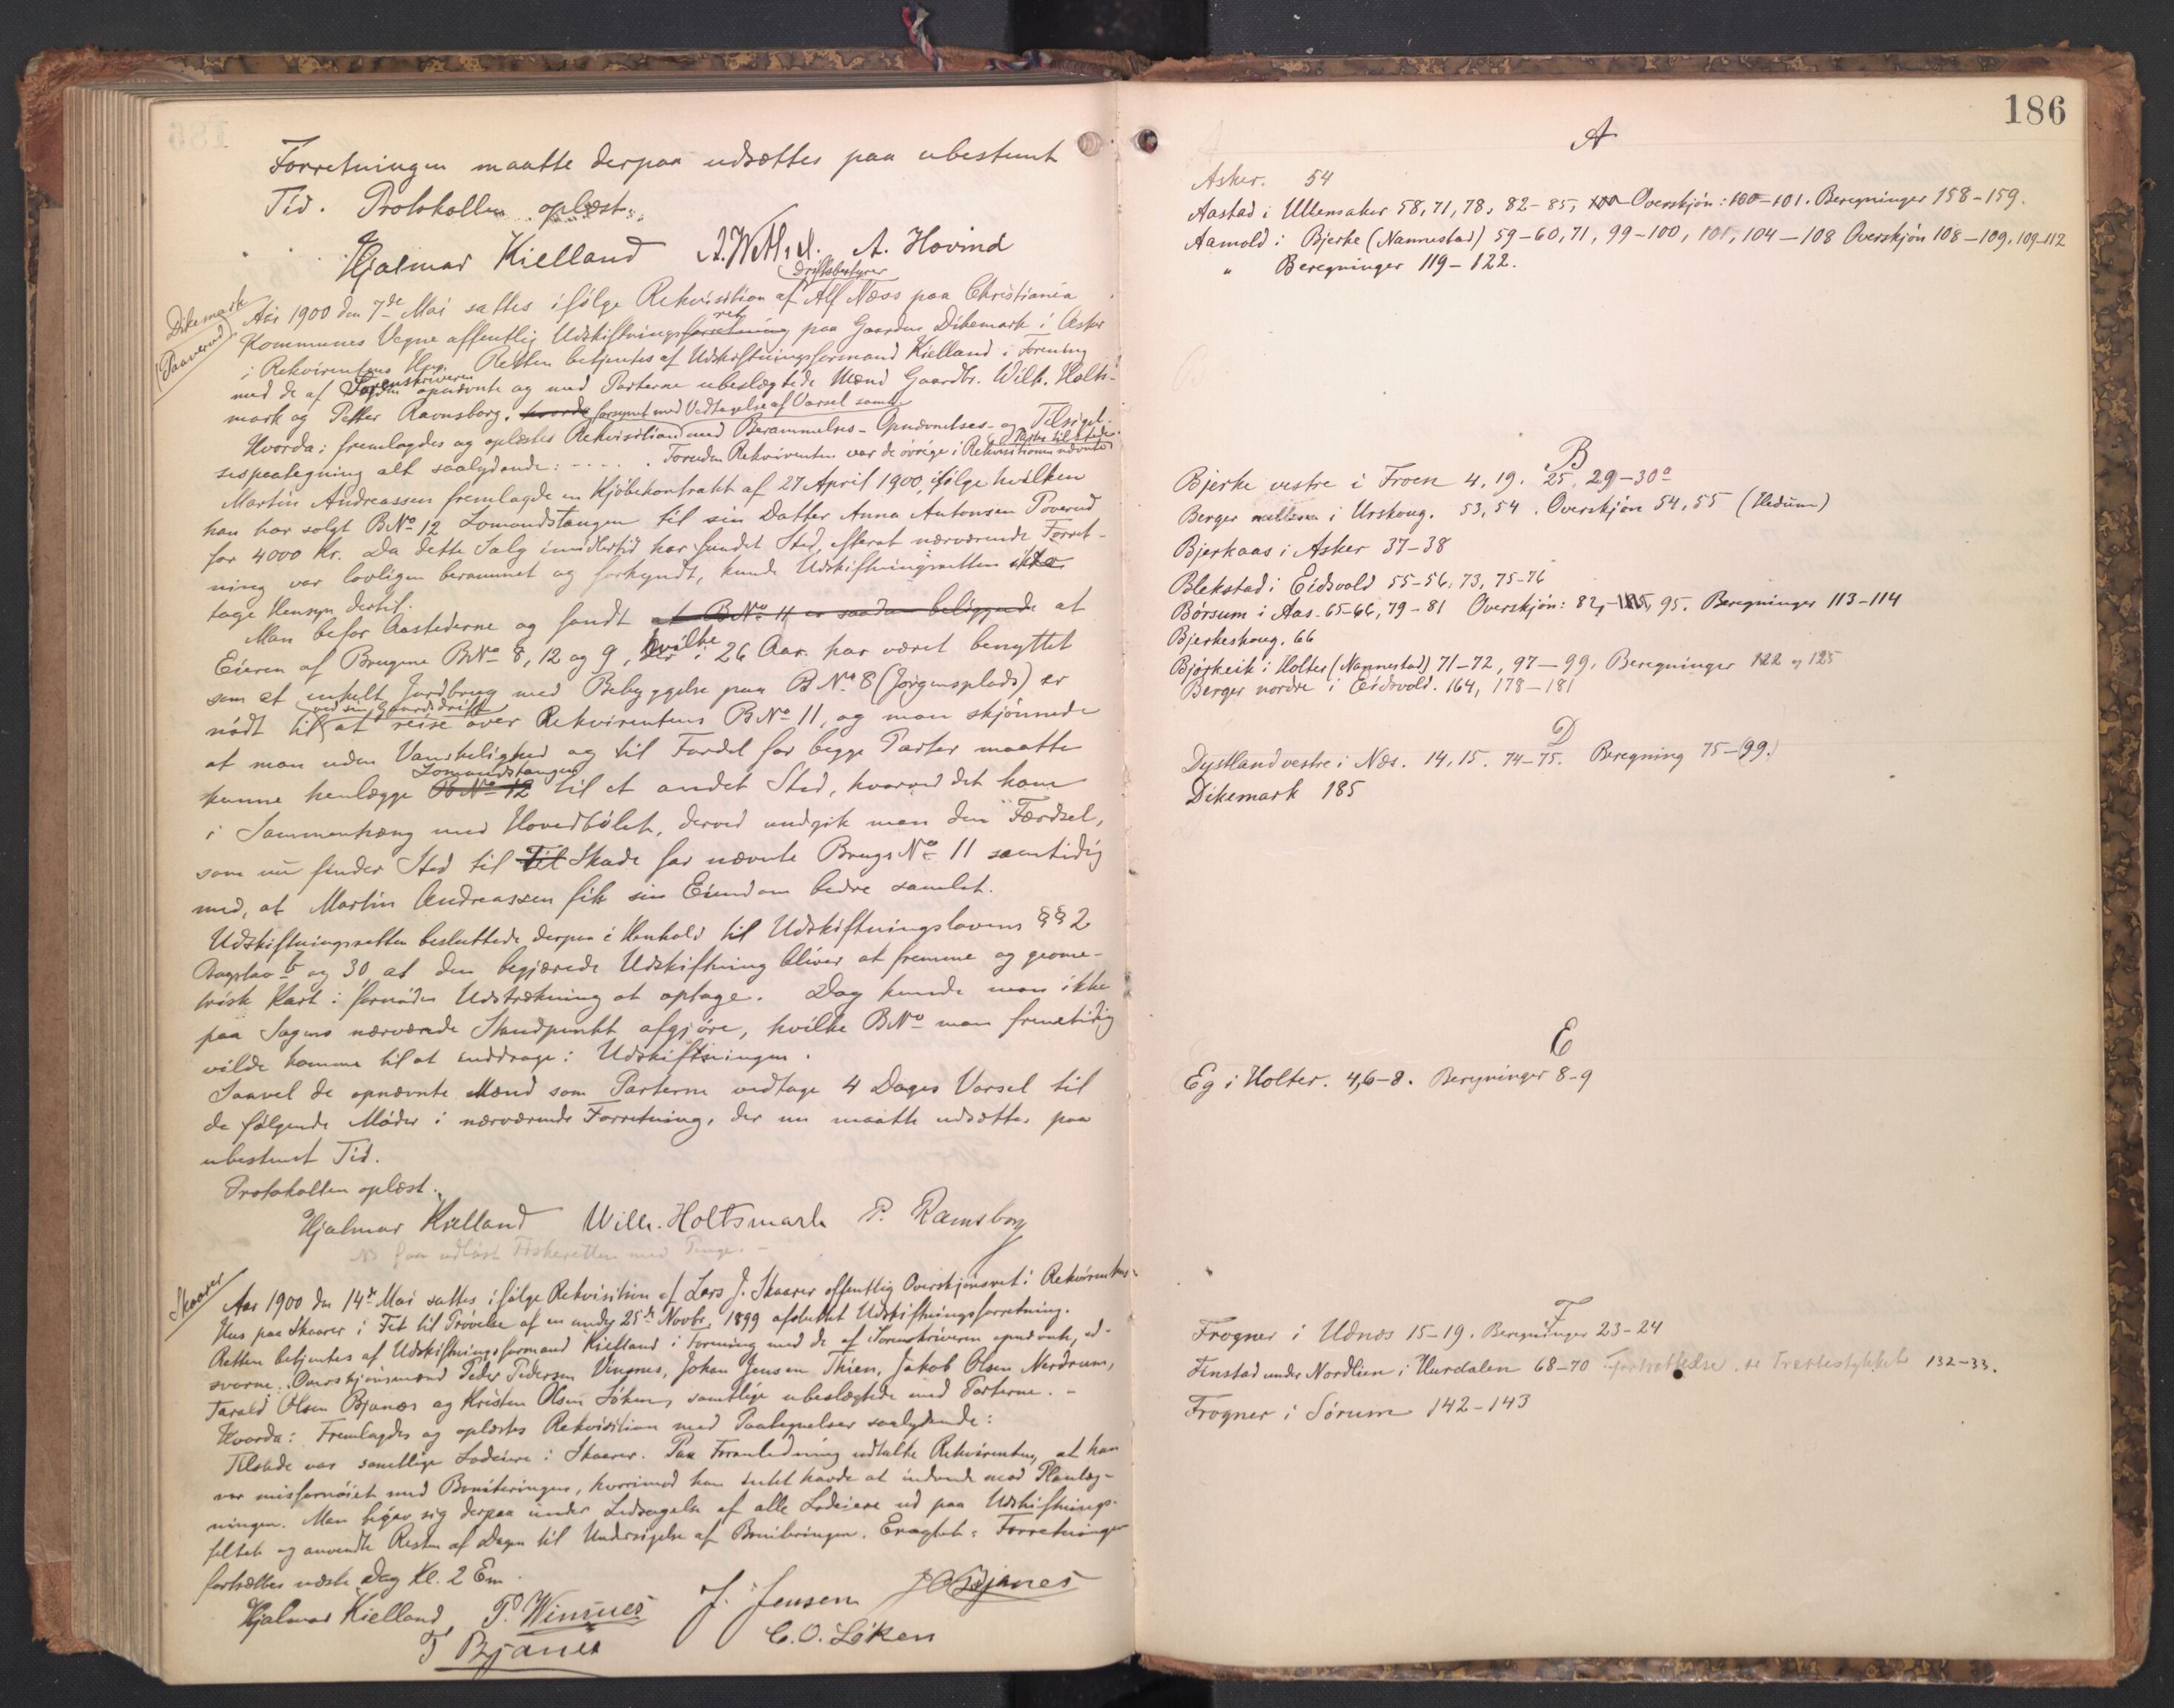 Forretningen maatte derpaa udsættes paa ubestemt
Tid. Protokollen oplæst.
Hjalmar Kielland A. Wethal. A. Hovind
Dikemark
(Paaverud)
driftsbestyrer
Aar 1900 den 7de Mai sattes ifølge Rekvisition af Alf Næss paa Christiania
ret
Kommunes Vegne offentlig Udskiftningsforretning paa Gaarden Dikemark i Asker
i Rekvirentens Hus. Retten betjentes af Udskiftningsformand Kielland i Forening
Sorenskriveren
med de af opnævnte og med Parterne ubeslægtede Mænd Gaardbr. Wilh. Holts-
mark og Petter Ravnsborg. forsynet med Vedtagelse af Varsel samt
Hvorda: fremlagdes og oplæstes Rekvisition med Berammelses- Opnævnelses- og Tilsigel-
Parter tilstede.
sespaategning alt saalydende: - - - - . Foruden Rekvirenten var de øvrige i Rekvisitionen nævnte
Martin Andreassen fremlagde en Kjøbekontrakt af 27 April 1900, ifølge hvilken
han har solgt BNo 12 Lomundstangen til sin Datter Anna Antonsen Poverud
for 4000 Kr. Da dette Salg imidlertid har fundet Sted, efterat nærværende Forret-
ning var lovligen berammet og forkyndt, kunde Udskiftningsretten ikke
tage Hensyn dertil.
Man befor Aastederne og fandt at BNo 11 er saadan beliggende at
Eieren af Brugene BNo 8, 12 og 9, hvilke i 26 Aar har været benyttet
som et enkelt Jordbrug med Bebyggelse paa BNo 8 (Jørgensplads) er
ved sin Gaardsdrift
nødt til at reise over Rekvirentens BNo 11, og man skjønnede
at man uden Vanskelighed og til Fordel for begge Parter maatte
Lomundstangen
kunne henlægge BNo 12 til et andet Sted, hvorved det kom
i Sammenhæng med Hovedbølet, derved undgik man den Færdsel,
som nu finder Sted til Til Skade for nævnte Brugs No 11 samtidig
med, at Martin Andreassen fik sin Eiendom bedre samlet.
Udskiftningsretten besluttede derpaa i Henhold til Udskiftningslovens §§ 2
Bogstav b og 30 at den begjærede Udskiftning bliver at fremme og geome-
trisk Kart i fornøden Udstrækning at optage. Dog kunde man ikke
paa Sagens nærværende Standpunkt afgjøre, hvilke BNo man fremtidig
vilde komme til at inddrage i Udskiftningen.
Saavel de opnævnte Mænd som Parterne vedtage 4 Dages Varsel til
de følgende Møder i nærværende Forretning, der nu maatte udsættes paa
ubestemt Tid.
Protokollen oplæst.
Hjalmar Kielland Wilh. Holtsmark P. Ramsborg
NB faa udløst Fiskeretten med Penge. -
Skaarer
Aar 1900 den 14de Mai sattes ifølge Rekvisition af Lars J. Skaarer offentlig Overskjønsret i Rekvirentens
Hus paa Skaarer i Fet til Prøvelse af en under 25de Novbr. 1899 afsluttet Udskiftningsforretning.
Retten betjentes af Udskiftningsformand Kielland i Forening med de af Sorenskriveren opnævnte, ed-
svorne Overskjønsmænd Peder Pedersen Vingnes, Johan Jensen Thien, Jakob Olsen Nerdrum,
Tarald Olsen Bjanæs og Kristen Olsen Løken, samtlige ubeslægtede med Parterne. -
Hvorda: Fremlagdes og oplæstes Rekvisition med Paategnelser saalydende:
Tilstede var samtlige Lodeiere i Skaarer. Paa Foranledning udtalte Rekvirenten, at han
var misfornøiet med Boniteringen, hvorimod han intet havde at indvende mod Planlæg-
ningen. Man begav sig derpaa under Ledsagelse af alle Lodeiere ud paa Udskiftnings-
feltet og anvendte Resten af Dagen til Undersøgelse af Boniteringen. Eragtet: Forretningen
fortsættes næste Dag Kl. 2 Em.
Hjalmar Kielland P. Wingnes J. Jensen
T Bjanes C. O. Løken
186
A
Asker. 54
Aastad i Ullensaker 58, 71, 78, 82-85, 100 Overskjøn: 100-101. Beregninger 158-159.
Aamold i Bjerke (Nannestad) 59-60, 71, 99-100, 101, 104-108 Overskjøn 108-109, 109-112
" Beregninger 119-122.
B
Bjerke vestre i Froen 4, 19. 25. 29-30a
Berger mellem i Urskoug. 53, 54. Overskjøn 54, 55 (Hedum)
Bjerkaas i Asker 37-38
Blekstad i Eidsvold 55-56, 73, 75-76
Børsum i Aas. 65-66, 79-81 Overskjøn: 82, 95. Beregninger 113-114
Bjerkeskoug. 66
Bjørkeik i Holter (Nannestad) 71-72, 97-99. Beregninger 122 og 125
Berger nordre i Eidsvold. 164, 178-181
D
Dystland vestre i Næs. 14, 15. 74-75. Beregning 75-(99.)
Dikemark 185
E
Eg i Holter. 4, 6-8. Beregninger 8-9
F
Frogner i Udnæs 15-19. Beregninger 23-24
Finstad under Nordlien i Hurdalen 68-70 fortsættelse se Trættestykket 132-33.
Frogner i Sørum 142-143